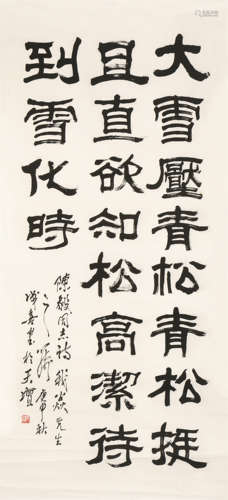 大雪壓青松青松挺
且直欲知松高潔待
到雪化時
陳毅同志詩 先生
之 庚申秋
書於